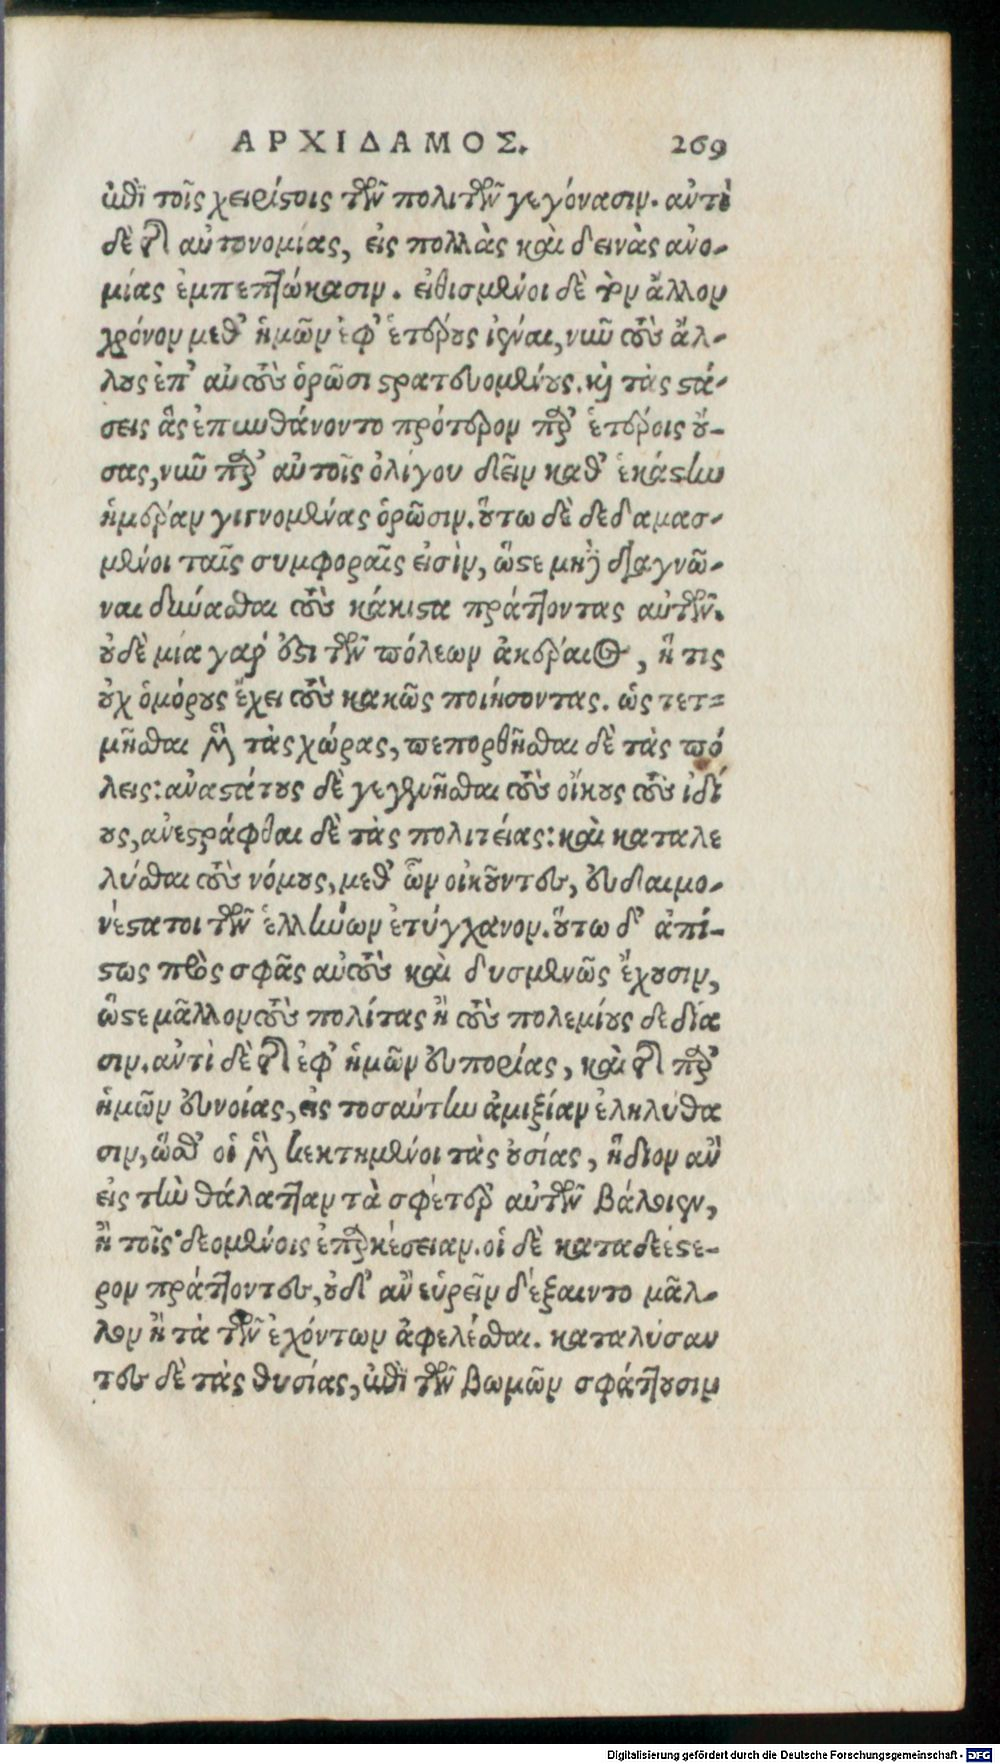 ΑΡΧΙΔΑΜΟΣ. 269
ἐπὶ τοῖς χειρίστοις τῶν πολιτῶν γεγόνασιν. ἀντὶ
δὲ τῆς αὐτονομίας, εἰς πολλὰς καὶ δεινὰς ἀνο-
μίας ἐμπεπτώκασιν. εἰθισμένοι δὲ τὸν ἄλλον
χρόνον μεθ' ἡμῶν ἐφ' ἑτέρους ἰέναι, νῦν τοὺς ἄλ-
λους ἐπ' αὐτοὺς ὁρῶσι στρατευομένους. καὶ τὰς στά-
σεις ἃς ἐπυνθάνοντο πρότερον παρ' ἑτέροις οὔ-
σας, νῦν παρ' αὐτοῖς ὀλίγου δεῖν καθ' ἑκάστην
ἡμέραν γιγνομένας ὁρῶσιν. οὕτω δὲ δεδαμασ-
μένοι ταῖς συμφοραῖς εἰσὶν, ὥστε μηδένα διαγνῶ-
ναι δύνασθαι τοὺς κάκιστα πράττοντας αὐτῶν.
οὐδὲ μία γάρ ἐστι τῶν πόλεων ἀκέραιος, ἥ τις
οὐχ ὁμόρους ἔχει τοὺς κακῶς ποιήσοντας. ὡς τετ-
μῆσθαι μὲν τὰς χώρας, πεπορθῆσθαι δὲ τὰς πό
λεις: ἀναστάτους δὲ γεγενῆσθαι τοὺς οἴκους τοὺς ἰδί
ους, ἀνεστράφθαι δὲ τὰς πολιτείας: καὶ καταλε
λύσθαι τοὺς νόμους, μεθ' ὧν οἰκοῦντες, εὐδαιμο-
νέστατοι τῶν ἑλλήνων ἐτύγχανον. οὕτω δ' ἀπί-
στως πρὸς σφᾶς αὐτοὺς καὶ δυσμενῶς ἔχουσιν,
ὥστε μᾶλλον τοὺς πολίτας ἢ τοὺς πολεμίους δεδία
σιν. ἀντὶ δὲ τῆς ἐφ' ἡμῶν εὐπορίας, καὶ τῆς παρ'
ἡμῶν εὐνοίας, εἰς τοσαύτην ἀμιξίαν ἐληλύθα
σιν, ὥσθ' οἱ μὲν κεκτημένοι τὰς οὐσίας, ἥδιον ἂν
εἰς τὴν θάλατταν τὰ σφέτερ' αὐτῶν βάλοιεν,
ἢ τοῖς δεομένοις ἐπαρκέσειαν. οἱ δὲ καταδεέστε-
ρον πράττοντες, οὐδ' ἂν εὑρεῖν δέξαιντο μᾶλ-
λον ἢ τὰ τῶν ἐχόντων ἀφελέσθαι. καταλύσαν
τες δὲ τὰς θυσίας, ἐπὶ τῶν βωμῶν σφάττουσιν
Digitalisierung gefördert durch die Deutsche Forschungsgemeinschaft - DFG